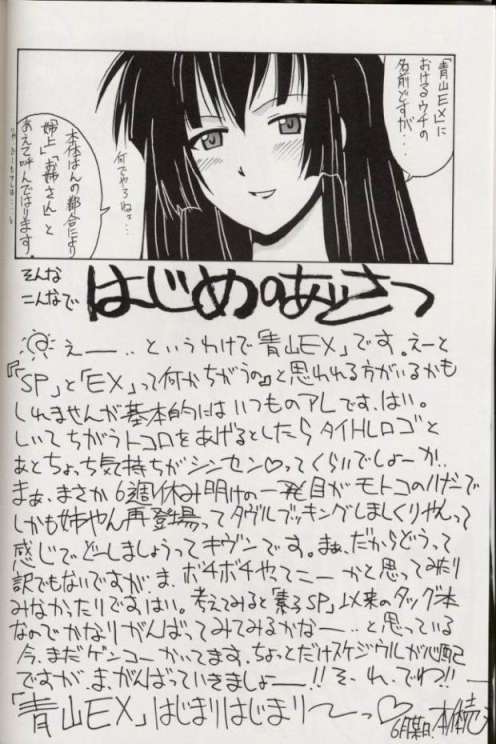 「青山EX」に
おけるウチの
名前どすが…
何でやろねェ…
本体はんの都合により
姉上」「お姉さん」と
あえて呼んではります。
そんな
こんなで
はじめのあいさつ
えー…というわけで「青山EX」です。えーと
『「SP」と「EX」って何かちがうの』と思われる方がいるかも
しれませんが基本的にはいつものアレです、はい。
しいてちがうトコロをあげるとしたらタイトルロゴと
あとちょっち気持ちがシンセン♡ってくらいでしょーか…
まぁ、まさか6週休み明けの一発目がモトコのハナシで
しかも姉やん再登場ってダヴルブッキングしまくりやんって
感じでどーしましょうってキヴンです。まぁ、だからどうって
訳でもないですが、ま、ボチボチやってこーかと思ってみたり
みなかったりですはい。考えてみると「素子SP」以来のタッグ本
なのでかなりがんばってみてみるかな—…と思っている
今、まだゲンコーかいてます、ちょっとだけスケジウルが心配
ですが、ま、がんばっていきましょー!!そ、れ、でわ!!
「青山EX」はじまりはじまり〜っ♡
6月某日.